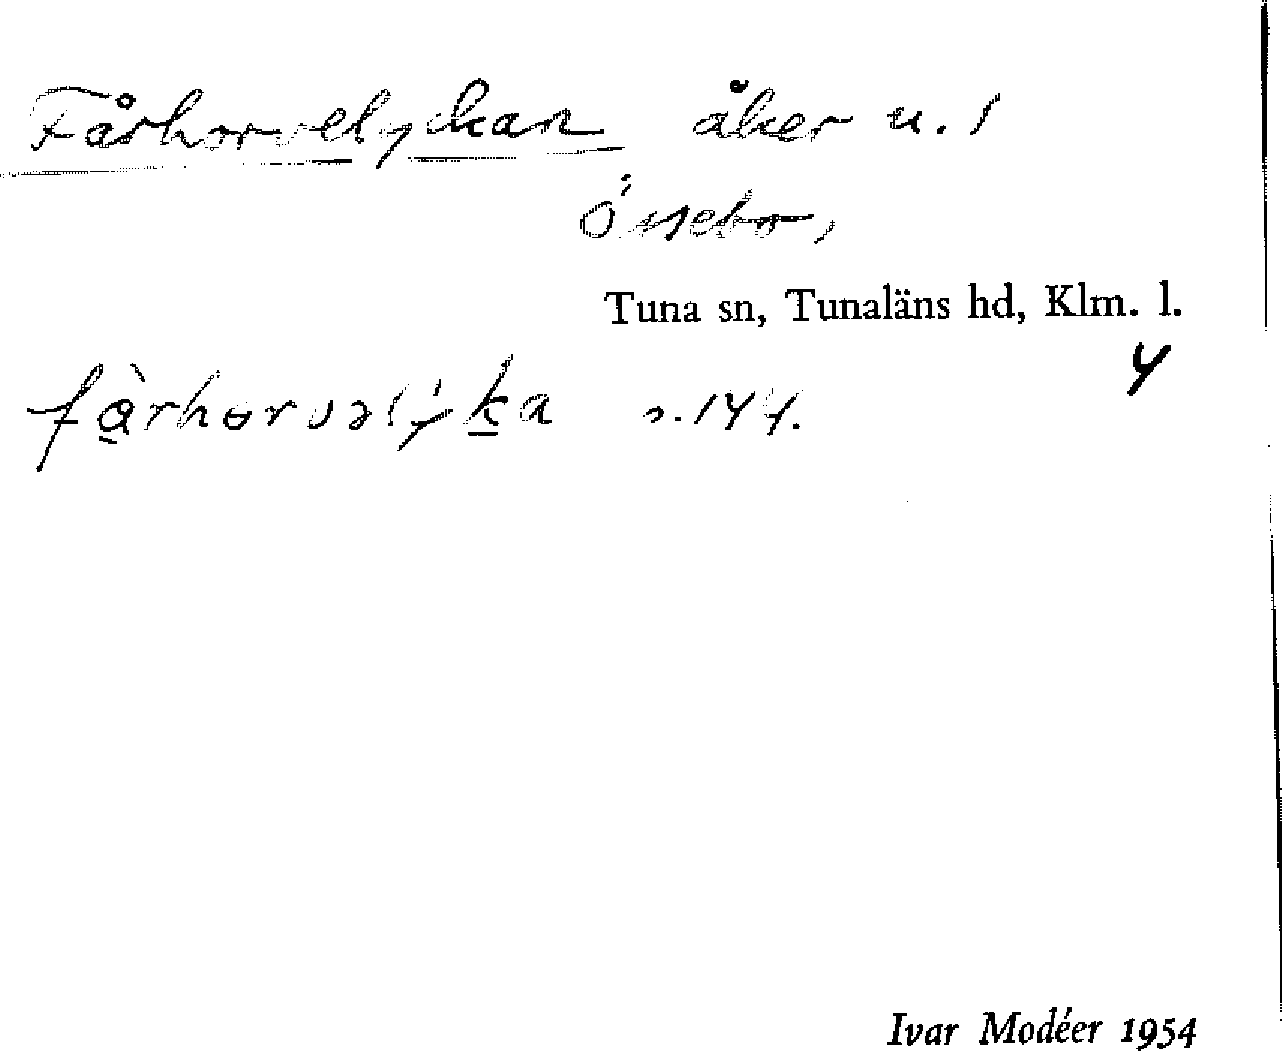 Fårhorvelyckan åker u. 1
Össebo,
Tuna sn, Tunaläns hd, Klm. l.
4
fårhorvəlyka s. 144.
Ivar Modéer 1954